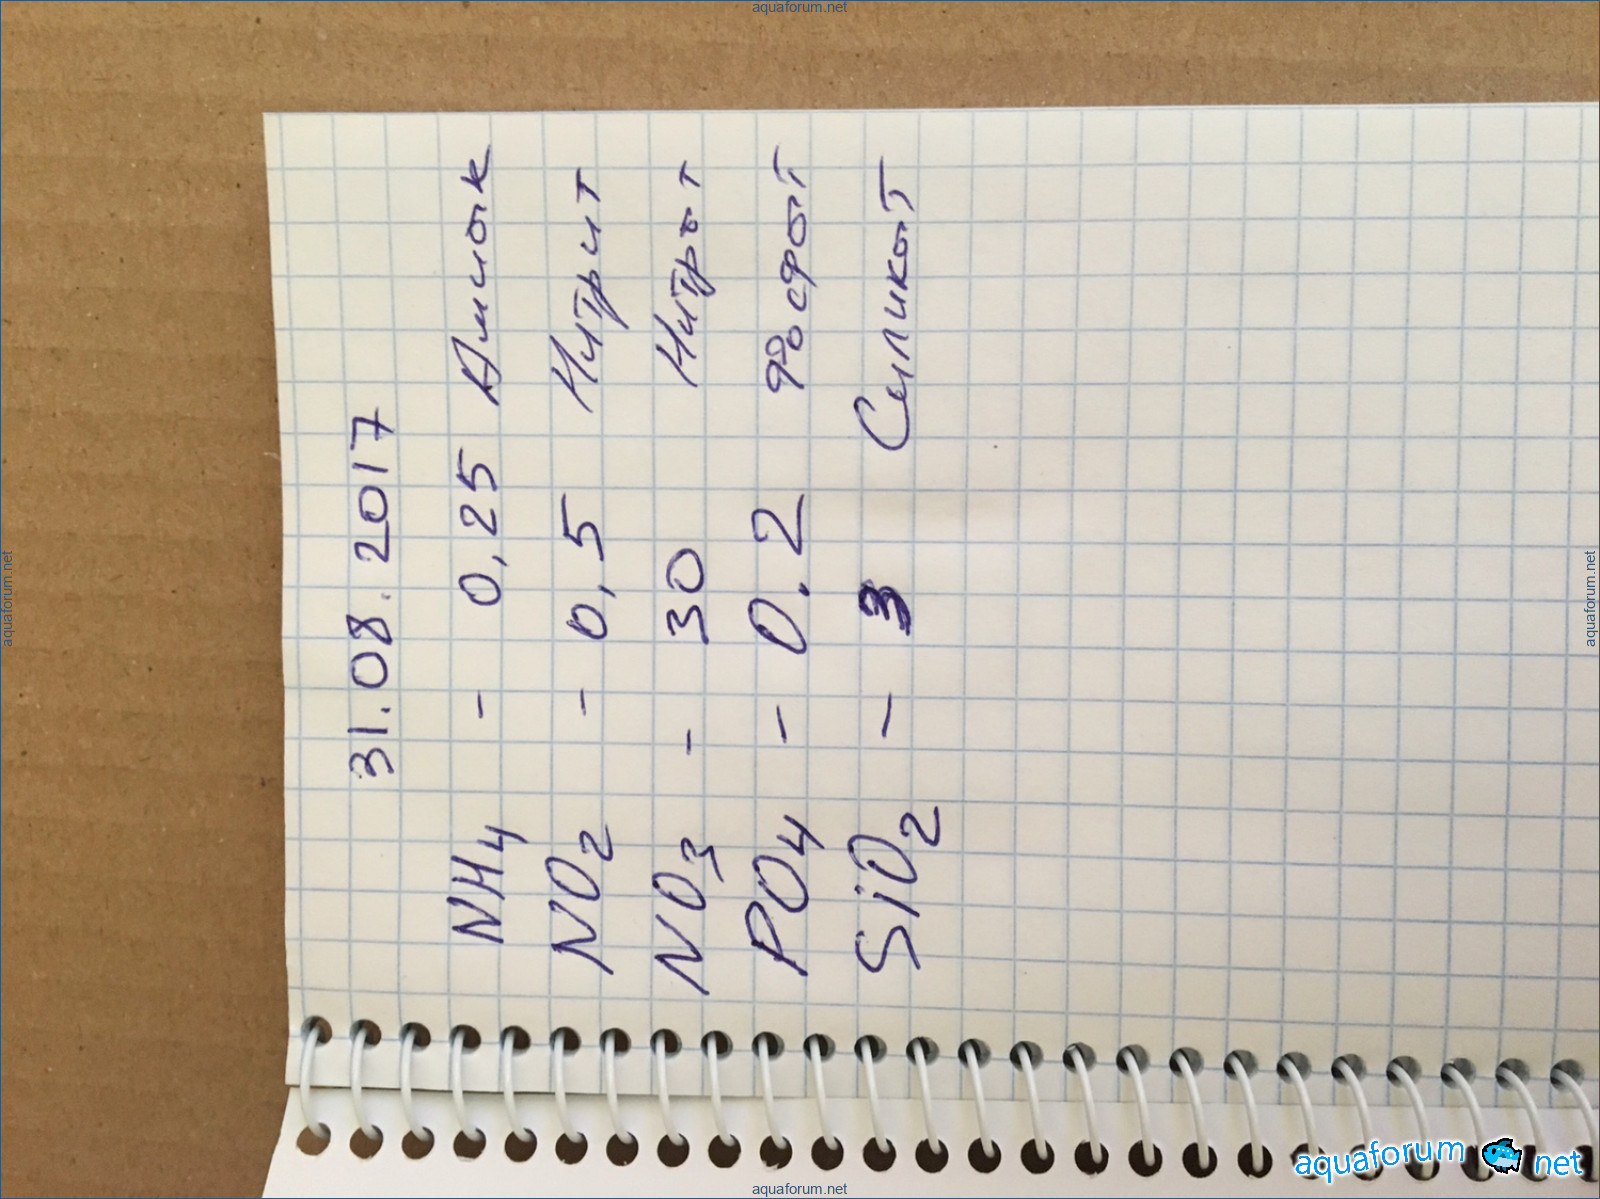 aquaforum.net
31.08.2017
NH4 - 0,25 Амиак
NO2 - 0,5 Нитрит
NO3 - 30 Нитрат
PO4 - 0.2 Фосфат
SiO2 - 3 Силикат
aquaforum.net
aquaforum.net
aquaforum net
aquaforum.net